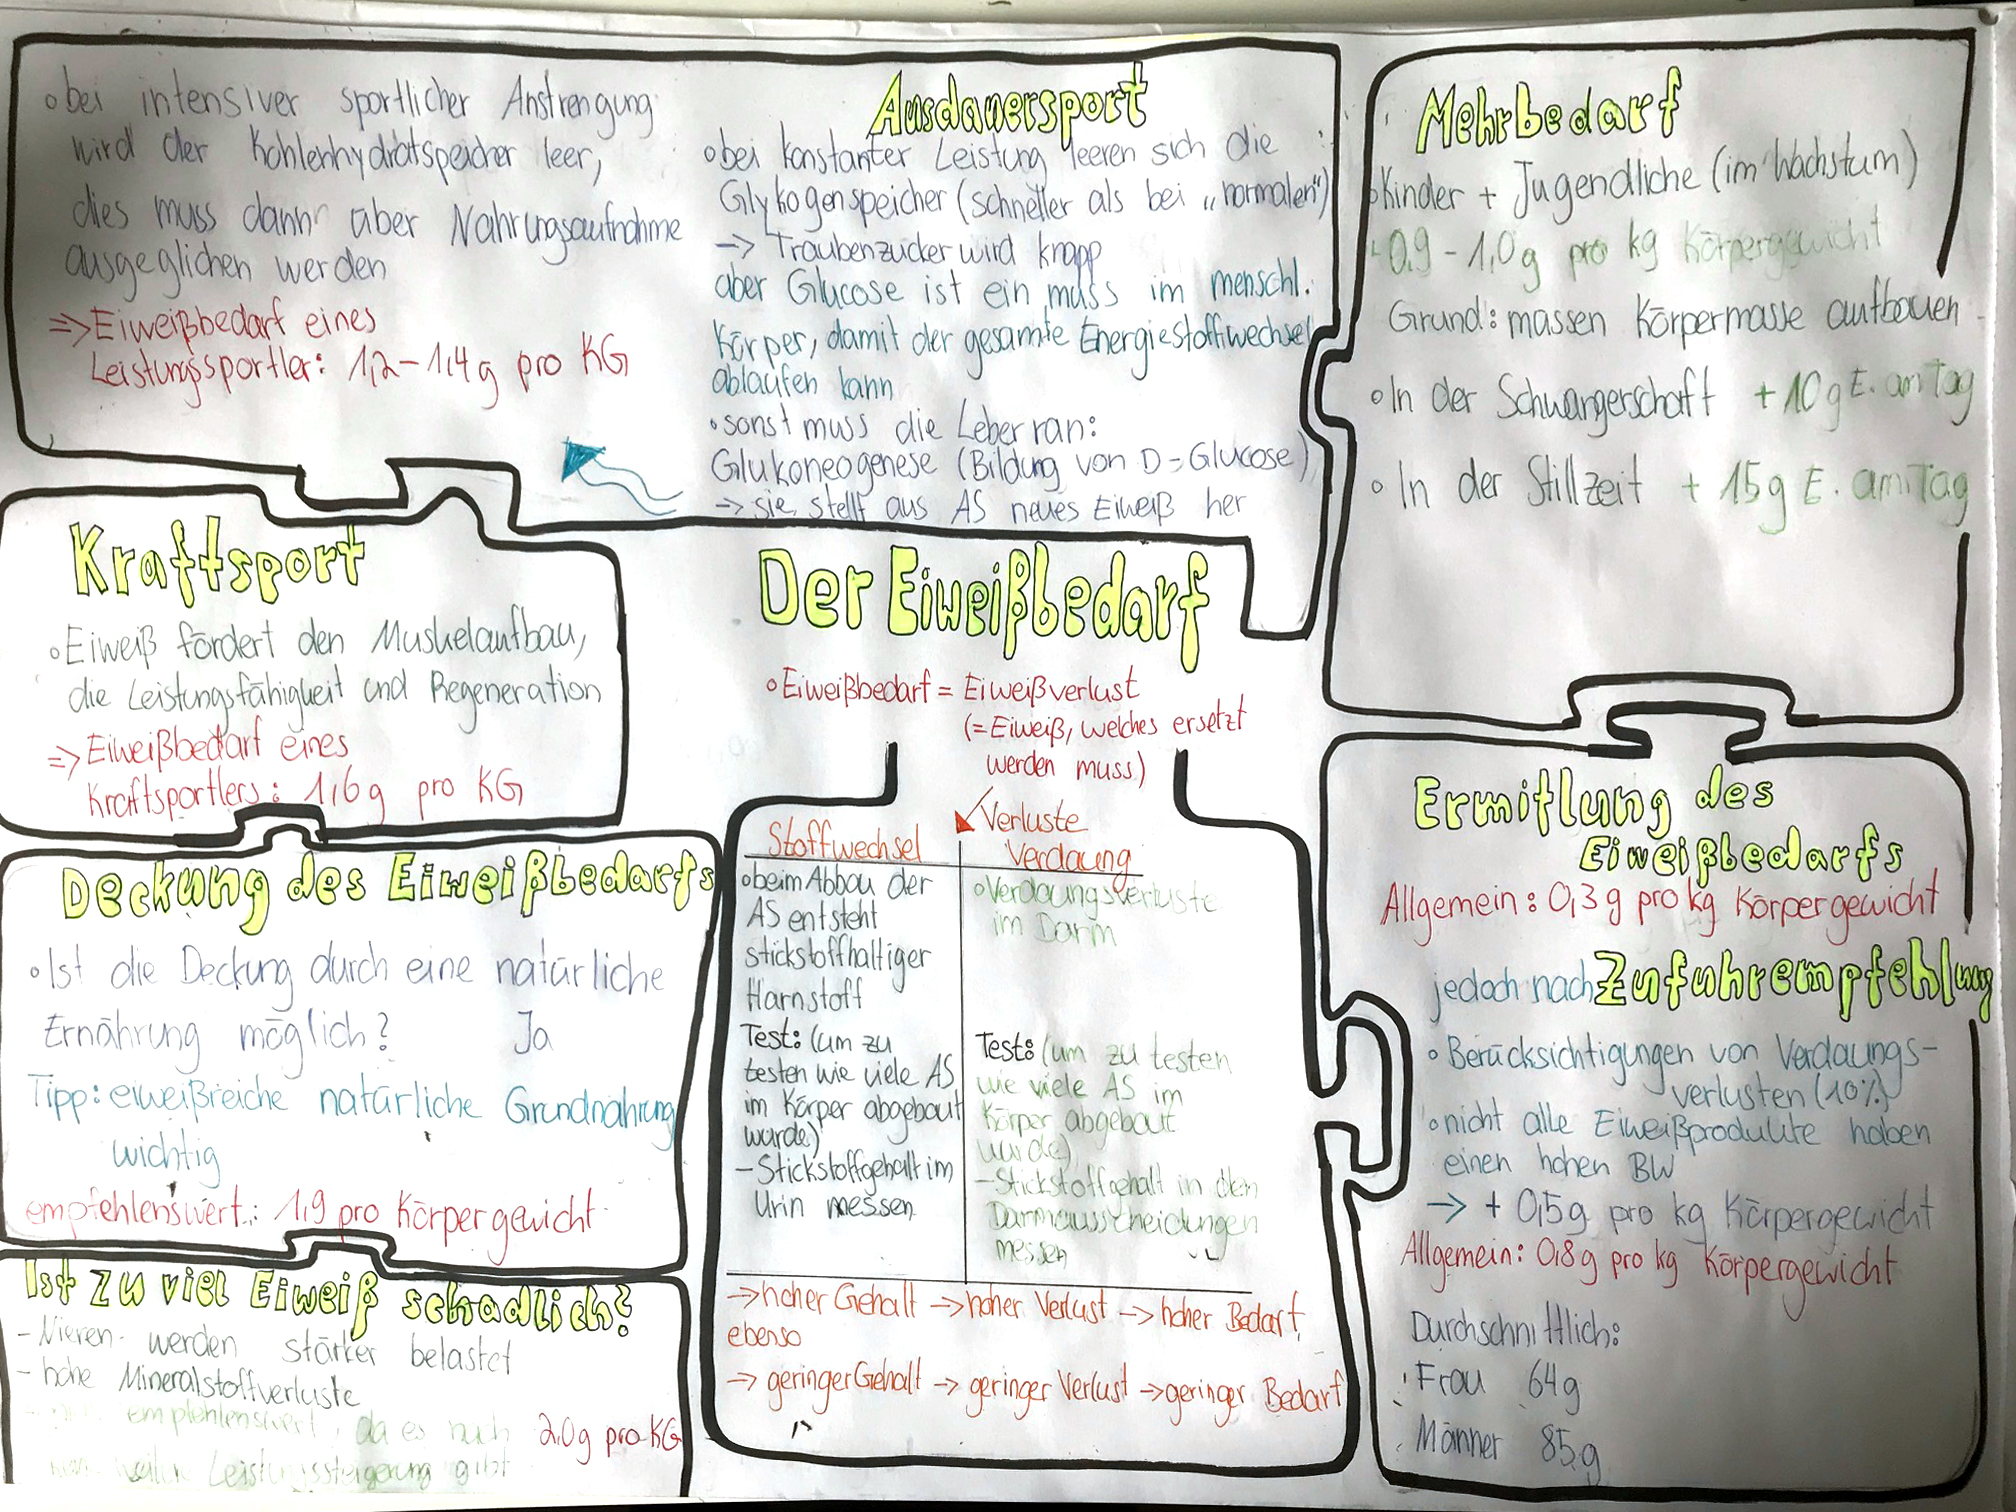 Ausdauersport
∘bei konstanter Leistung leeren sich die
Glykogenspeicher (schneller als bei „normalen")
-> Traubenzucker wird knapp
aber Glucose ist ein muss im menschl.
Körper, damit der gesamte Energiestoffwechsel
ablaufen kann
∘sonst muss die Leber ran:
Glukoneogenese (Bildung von D-Glucose)
-> sie stellt aus AS neues Eiweiß her
∘bei intensiver sportlicher Anstrengung
wird der Kohlenhydratspeicher leer,
dies muss dann aber Nahrungsaufnahme
ausgeglichen werden
=> Eiweißbedarf eines
Leistungssportler: 1,2-1,4g pro KG
Mehrbedarf
∘Kinder + Jugendliche (im Wachstum)
0,9-1,0g pro kg Körpergewicht
Grund: massen Körpermasse aufbauen
∘In der Schwangerschaft +10g E. am Tag
∘In der Stillzeit +15g E. am Tag
Kraftsport
∘Eiweiß fördert den Muskelaufbau,
die Leistungsfähigkeit und Regeneration
=> Eiweißbedarf eines
Kraftsportlers: 1,6g pro KG
Der Eiweißbedarf
∘Eiweißbedarf = Eiweißverlust
(=Eiweiß, welches ersetzt
werden muss)
Verluste
Stoffwechsel
∘beim Abbau der
AS entsteht
stickstoffhaltiger
Harnstoff
Test: (um zu
testen wie viele AS
im Körper abgebaut
wurde)
-Stickstoffgehalt im
Urin messen
Verdauung
∘Verdauungsverluste
im Darm
Test: (um zu testen
wie viele AS im
Körper abgebaut
wurde)
-Stickstoffgehalt in den
Darmausscheidungen
messen
-> hoher Gehalt -> hoher Verlust -> hoher Bedarf
ebenso
-> geringer Gehalt -> geringer Verlust -> geringer Bedarf
Ermitlung des
Eiweißbedarfs
Allgemein: 0,3g pro kg Körpergewicht
jedoch nach Zufuhrempfehlung
∘Berücksichtigungen von Verdauungs-
verlusten (10%)
∘nicht alle Eiweißprodukte haben
einen hohen BW
-> + 0,5g pro kg Körpergewicht
Allgemein: 0,8g pro kg Körpergewicht
Durchschnittlich:
Frau 64g
Männer 85g
Deckung des Eiweißbedarfs
∘Ist die Deckung durch eine natürliche
Ernährung möglich? Ja
Tipp: eiweißreiche natürliche Grundnahrung
wichtig
empfehlenswert: 1,9 pro Körpergewicht
Ist zu viel Eiweiß schädlich?
-Nieren werden stärker belastet
-hohe Mineralstoffverluste
empfehlenswert, da es nach 2,0g pro KG
Leistungssteigerung gibt